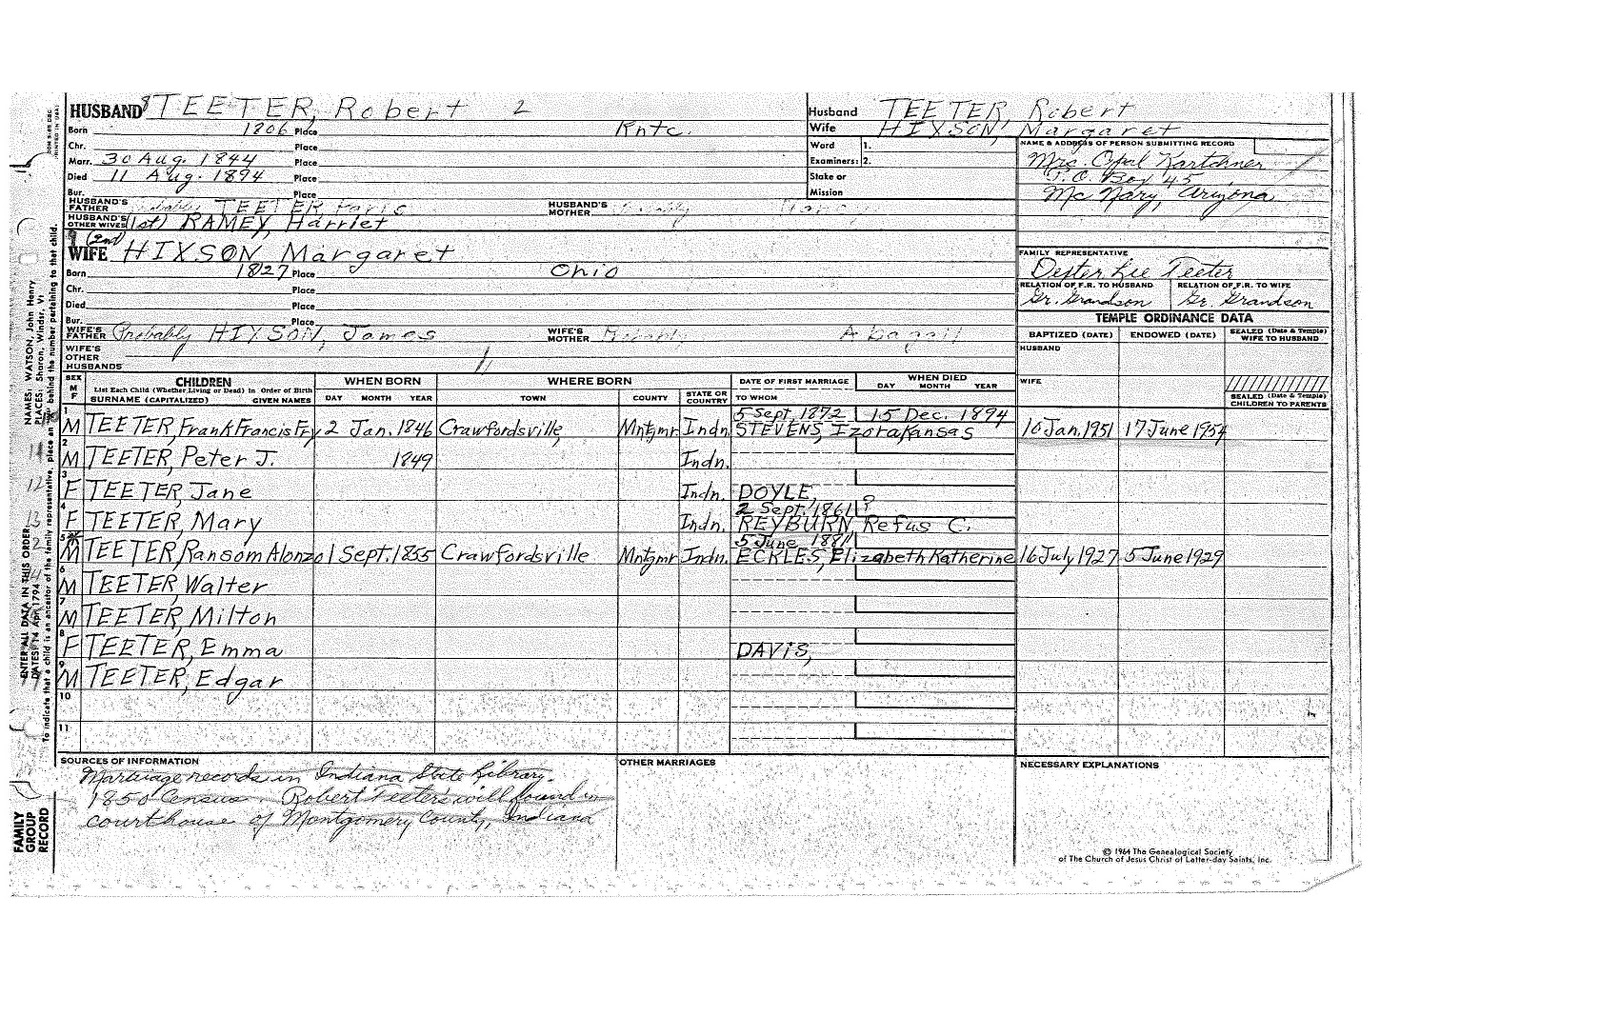 HUSBAND TEETER, Robert 2
Born 1806 Place Kntc.
Chr. Place
Marr. 30 Aug. 1844 Place
Died 11 Aug. 1894 Place
Bur. Place
HUSBAND'S FATHER Probably TEETER Paris HUSBAND'S MOTHER Probably
HUSBAND'S OTHER WIVES (1st) RAMEY, Harriet
(2nd)
WIFE HIXSON Margaret
Born 1827 Place Ohio
Chr. Place
Died Place
Bur. Place
WIFE'S FATHER Probably HIXSON, James WIFE'S MOTHER Probably Abagail
WIFE'S OTHER HUSBANDS
Husband TEETER, Robert
Wife HIXSON, Margaret
Ward 1.
Examiners: 2.
Stake or Mission
NAME & ADDRESS OF PERSON SUBMITTING RECORD
Mrs. Opal Kartchner
P.O. Box 45
Mc Nary, Arizona
FAMILY REPRESENTATIVE
Dester Lee Teeter
RELATION OF F.R. TO HUSBAND RELATION OF F.R. TO WIFE
Gr. Grandson Gr. Grandson
TEMPLE ORDINANCE DATA
BAPTIZED (DATE) ENDOWED (DATE) SEALED (Date & Temple) WIFE TO HUSBAND
HUSBAND
WIFE
SEALED (Date & Temple) CHILDREN TO PARENTS
SEX M F CHILDREN WHEN BORN WHERE BORN DATE OF FIRST MARRIAGE WHEN DIED
List Each Child (Whether Living or Dead) in Order of Birth DAY MONTH YEAR
SURNAME (CAPITALIZED) GIVEN NAMES DAY MONTH YEAR TOWN COUNTY STATE OR COUNTRY TO WHOM
1 5 Sept. 1872 15 Dec. 1894
M TEETER, Frank Francis Fry 2 Jan. 1846 Crawfordsville, Mntgmr Indn. STEVENS, Izorakansas 10 Jan. 1951 17 June 1954
2
M TEETER, Peter J. 1849 Indn.
3
F TEETER, Jane Indn. DOYLE,
4 2 Sept. 1861 ?
F TEETER, Mary Indn. REYBURN, Refus C.
5 5 June 1881
M TEETER, Ransom Alonzo 1 Sept. 1855 Crawfordsville Mntgmr Indn. ECKLES, Elizabeth Katherine 16 July 1927 5 June 1929
6
M TEETER Walter
7
M TEETER, Milton
8
F TEETER, Emma DAVIS,
9
M TEETER, Edgar
10
11
SOURCES OF INFORMATION
Marriage records in Indiana State Library.
1850 Census. Robert Teeter's will found in
courthouse of Montgomery County, Indiana
OTHER MARRIAGES
NECESSARY EXPLANATIONS
© 1964 The Genealogical Society
of The Church of Jesus Christ of Latter-day Saints, Inc.
FAMILY GROUP RECORD
ENTER ALL DATA IN THIS ORDER:
NAMES: WATSON, John Henry
DATES: 14 Apr 1794
PLACES: Sharon, Windsr, Vt
To indicate that a child is an ancestor of the family representative, place an behind the number pertaining to that child.